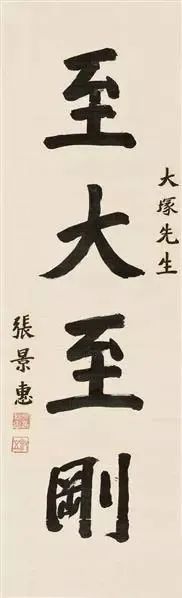 大塚先生
至大至剛
張景惠